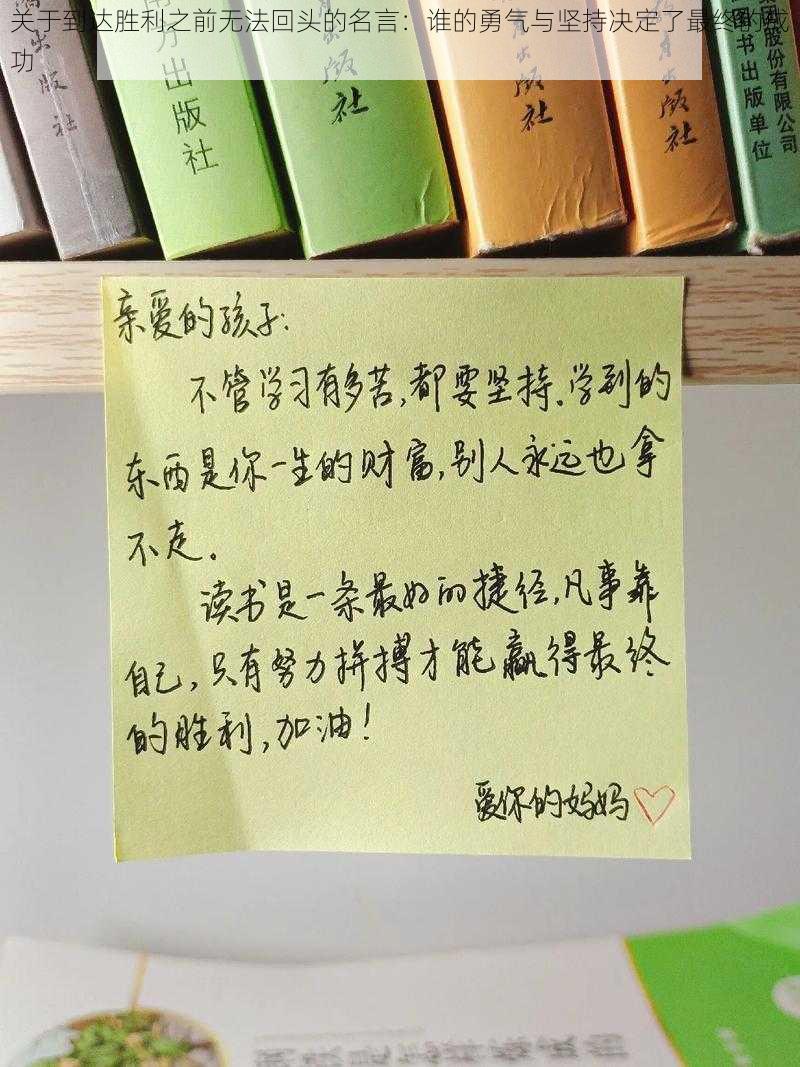 关于到达胜利之前无法回头的名言：谁的勇气与坚持决定了最终的成
功
出版社
南方出版社
出版社
出版社
出版社
图书出版单位
股份有限公司
亲爱的孩子：
不管学习有多苦，都要坚持。学到的
东西是你一生的财富，别人永远也拿
不走。
读书是一条最好的捷径，凡事靠
自己，只有努力拼搏才能赢得最终
的胜利，加油！
爱你的妈妈